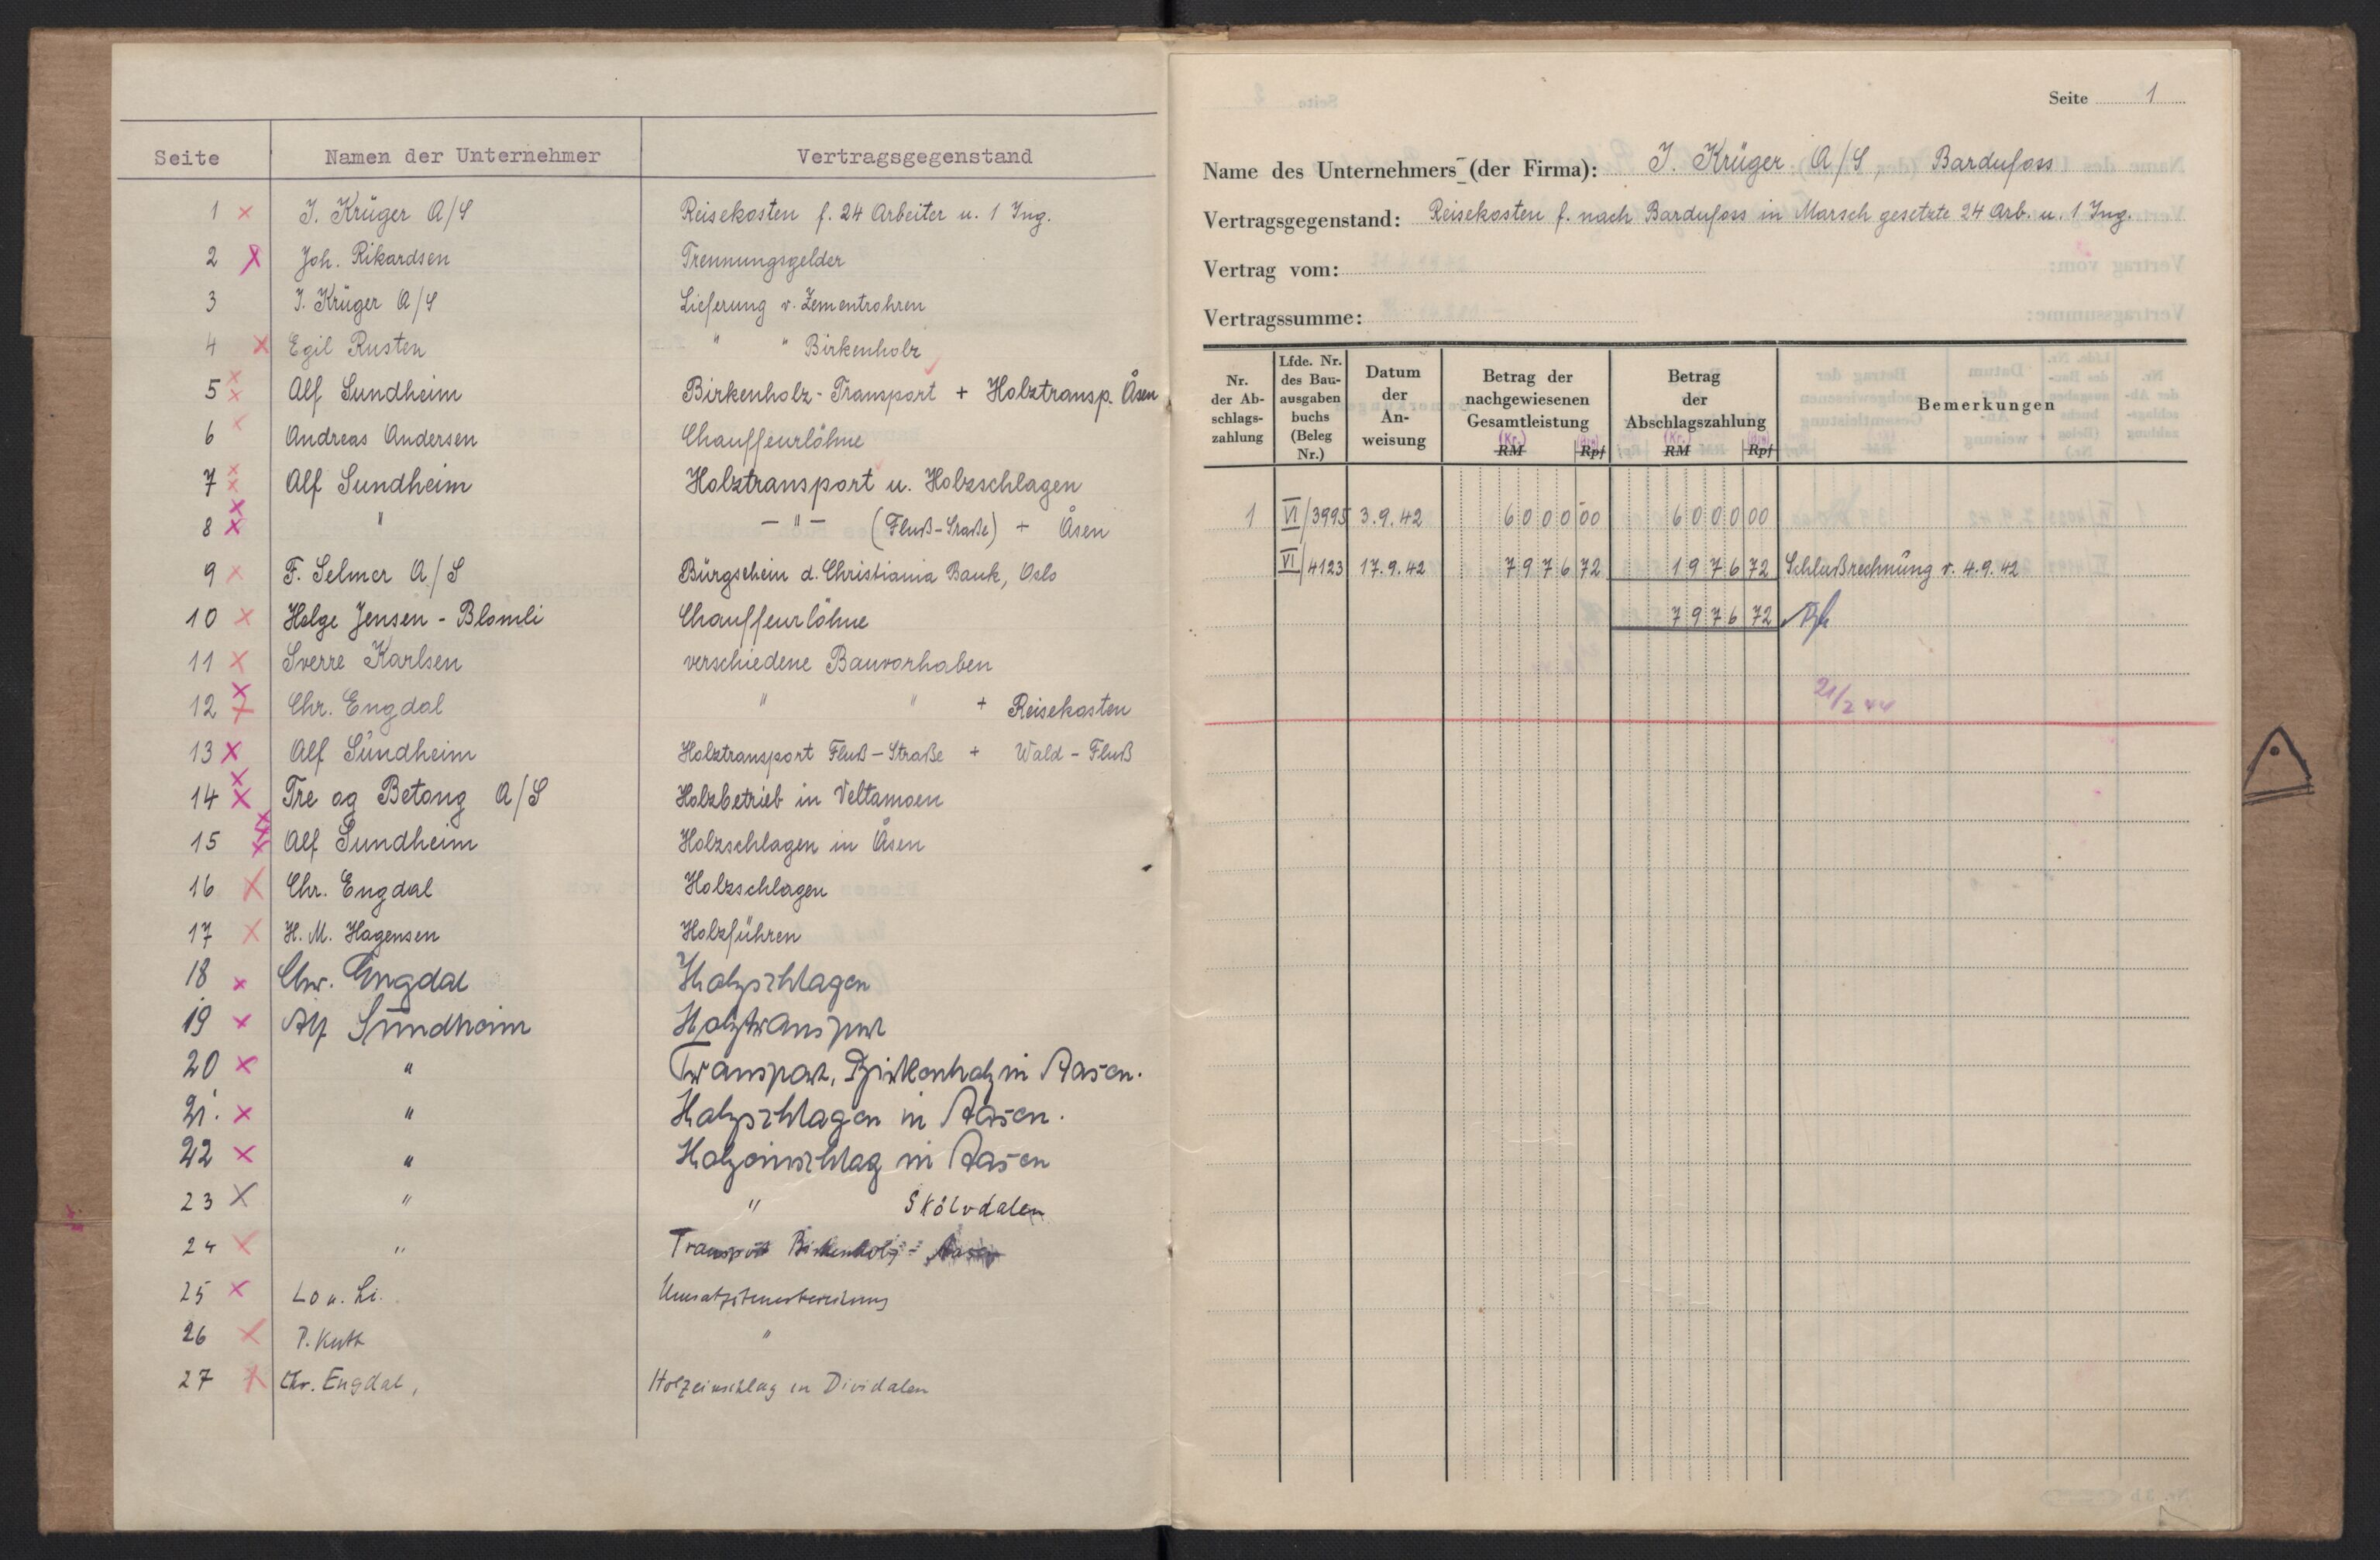 Seite Namen der Unternehmer Vertragsgegenstand
1 × J. Krüger A/S Reisekosten f. 24 Arbeiter u. 1 Ing.
2 × Joh. Rikardsen Trennungsgelder
3 J. Krüger A/S Lieferung v. Zementrohren
4 × Egil Rusten " " Birkenholz
5 × × Alf Sundheim Birkenholz-Transport + Holztransp. Åsen
6 Andreas Andersen Chauffeurlöhne
7 × × Alf Sundheim Holztransport u. Holzschlagen
8 × × " — " — (Fluß-Straße) + Åsen
9 × F. Selmer A/S Bürgschein d. Christiania Bank, Oslo
10 × Helge Jensen - Blomli Chauffeurlöhne
11 × Sverre Karlsen verschiedene Bauvorhaben
12 × × Chr. Engdal " " + Reisekosten
13 × Alf Sündheim Holztransport Fluß-Straße + Wald-Fluß
14 × × Tre og Betong A/S Holzbetrieb in Veltamoen
15 × × × Alf Sundheim Holzschlagen in Åsen
16 × Chr. Engdal Holzschlagen
17 × H. M. Hagensen Holzführen
18 × Chr. Engdal Holzschlagen
19 × Alf Sündheim Holztransport
20 × " Transport, Birkenholz in Aasen.
21. × " Holzschlagen in Aasen.
22 × " Holzeinschlag in Aasen
23 × " " Skölvdalen
24 × " Transport Birkenholz - Aasen
25 × Lo u. Li.
26 × "
27 × Chr. Engdal, Holzeinschlag in Dividalen
Seite 1
Name des Unternehmers (der Firma): J. Krüger A/S, Bardufoss
Vertragsgegenstand: Reisekosten f. nach Bardufoss in Marsch gesetzte 24 Arb. u. 1 Ing.
Vertrag vom:
Vertragssumme:
Nr. der Ab-schlags-zahlung
Lfde. Nr. des Bau-ausgaben buchs (Beleg Nr.)
Datum der An-weisung
Betrag der nachgewiesenen Gesamtleistung (Kr.) RM (öre) Rpf
Betrag der Abschlagszahlung (Kr.) RM (öre) Rpf
Bemerkungen
1 VI/3995 3.9.42 6000 00 6000 00
VI/4123 17.9.42 7976 72 1976 72 Schlußrechnüng v. 4.9.42
7976 72
21/2 44